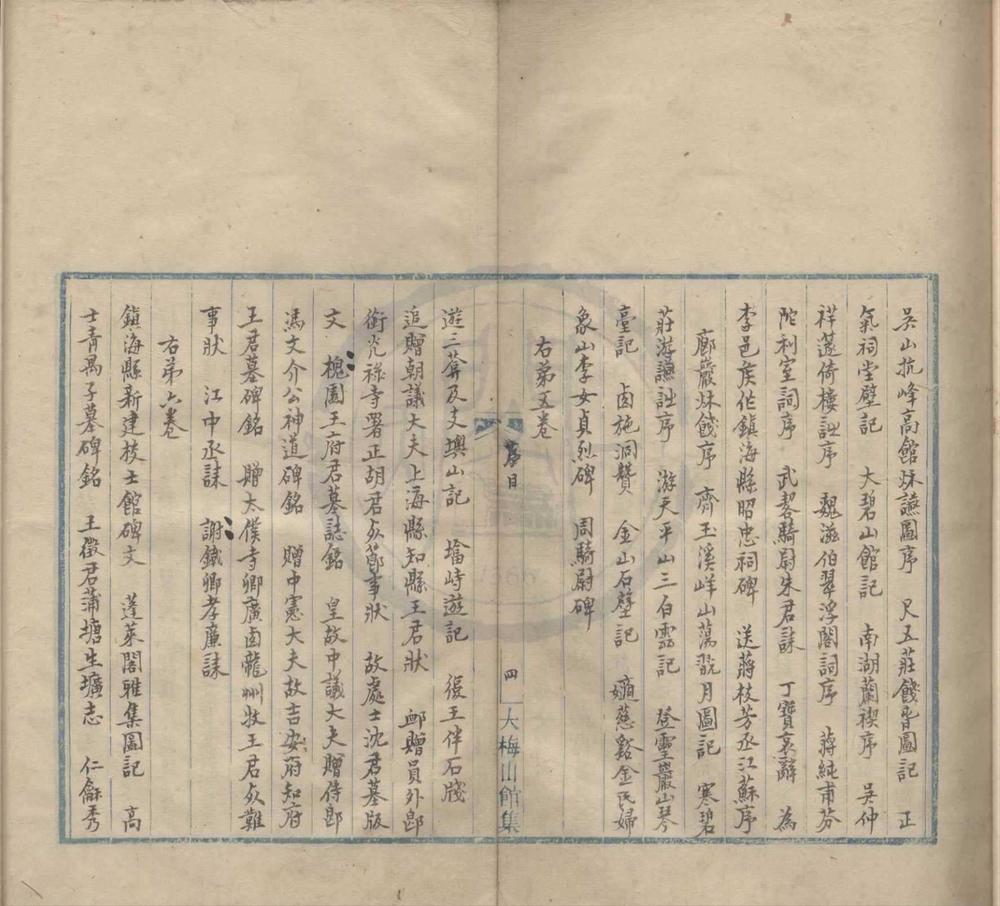 吳山抗峰高館秌讌圖序　尺五莊餞春圖記　正
氣祠堂壁記　大碧山館記　南湖蘭禊序　吳仲
祥蘧倚樓詞序　魏滋伯翠浮閣詞序　蔣純甫芬
陀利室詞序　武畧騎尉朱君誄　丁寶哀辭　為
李邑矦作鎮海縣昭忠祠碑　送蔣枝芳丞江蘇序
鄺巖秌餞序　齊玉溪峄山蕩翫月圖記　寒碧
莊游讌詩序　游天平山三白雲記　登靈巖山琴
臺記　卤施洞贊　金山石壁記　嬄慈谿金氏婦
象山李女貞烈碑　周騎尉碑
右弟五卷
序目
四　大梅山館集
遊三葊及支㠘山記　墖峙遊記　復王伴石牋
追贈朝議大夫上海縣知縣王君狀　䘏贈員外郎
銜光祿寺署正胡君夊節事狀　故處士沈君墓版
文　槐園王府君墓誌銘　皇故中議大夫贈侍郎
馮文介公神道碑銘　贈中憲大夫故吉安府知府
王君墓碑銘　贈太僕寺卿廣卤龍州牧王君夊難
事狀　江中丞誄　謝鐵卿孝廉誄
右弟六卷
鎮海縣新建校士館碑文　蓬萊閣雅集圖記　高
士青禺子墓碑銘　王徵君蒲塘生壙志　仁龢秀